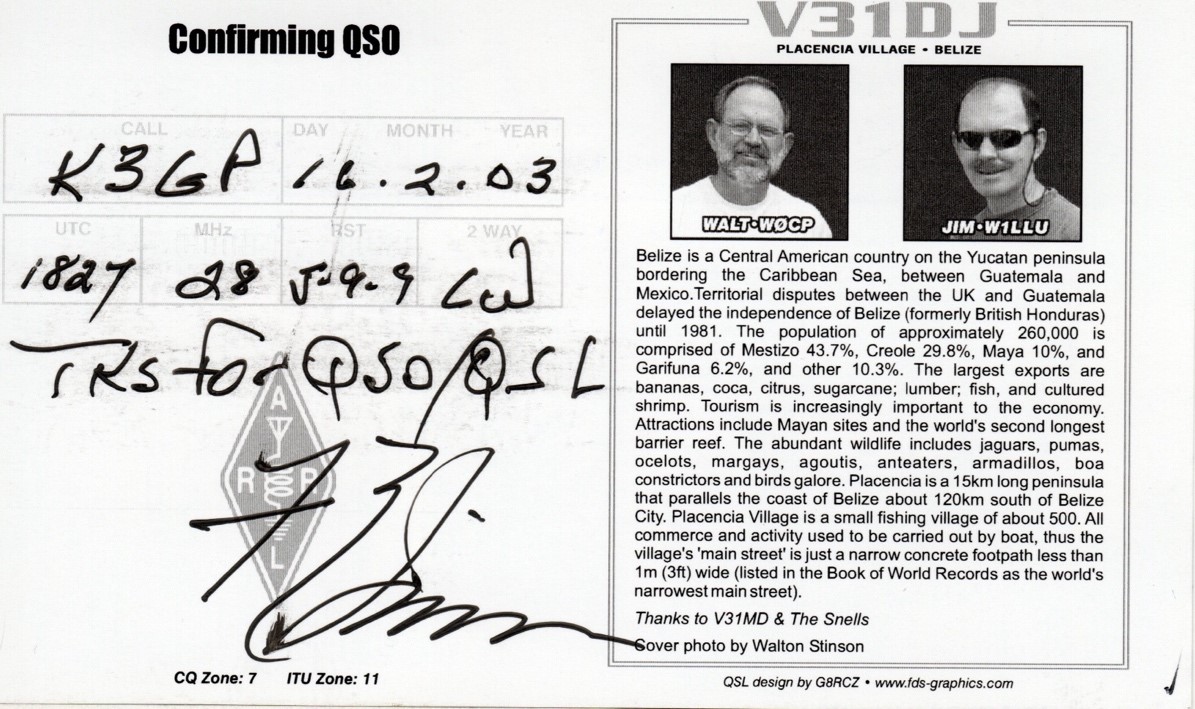 Confirming QSO
CALL DAY MONTH YEAR
K3GP 16.2.03
UTC MHz RST 2 WAY
1827 28 5-9-9 CW
TKS for QSO/QSL
73
A
R R
L
CQ Zone: 7 ITU Zone: 11
V31DJ
PLACENCIA VILLAGE • BELIZE
WALT•WØCP
JIM•W1LLU
Belize is a Central American country on the Yucatan peninsula
bordering the Caribbean Sea, between Guatemala and
Mexico.Territorial disputes between the UK and Guatemala
delayed the independence of Belize (formerly British Honduras)
until 1981. The population of approximately 260,000 is
comprised of Mestizo 43.7%, Creole 29.8%, Maya 10%, and
Garifuna 6.2%, and other 10.3%. The largest exports are
bananas, coca, citrus, sugarcane; lumber; fish, and cultured
shrimp. Tourism is increasingly important to the economy.
Attractions include Mayan sites and the world's second longest
barrier reef. The abundant wildlife includes jaguars, pumas,
ocelots, margays, agoutis, anteaters, armadillos, boa
constrictors and birds galore. Placencia is a 15km long peninsula
that parallels the coast of Belize about 120km south of Belize
City. Placencia Village is a small fishing village of about 500. All
commerce and activity used to be carried out by boat, thus the
village's 'main street' is just a narrow concrete footpath less than
1m (3ft) wide (listed in the Book of World Records as the world's
narrowest main street).
Thanks to V31MD & The Snells
Cover photo by Walton Stinson
QSL design by G8RCZ • www.fds-graphics.com